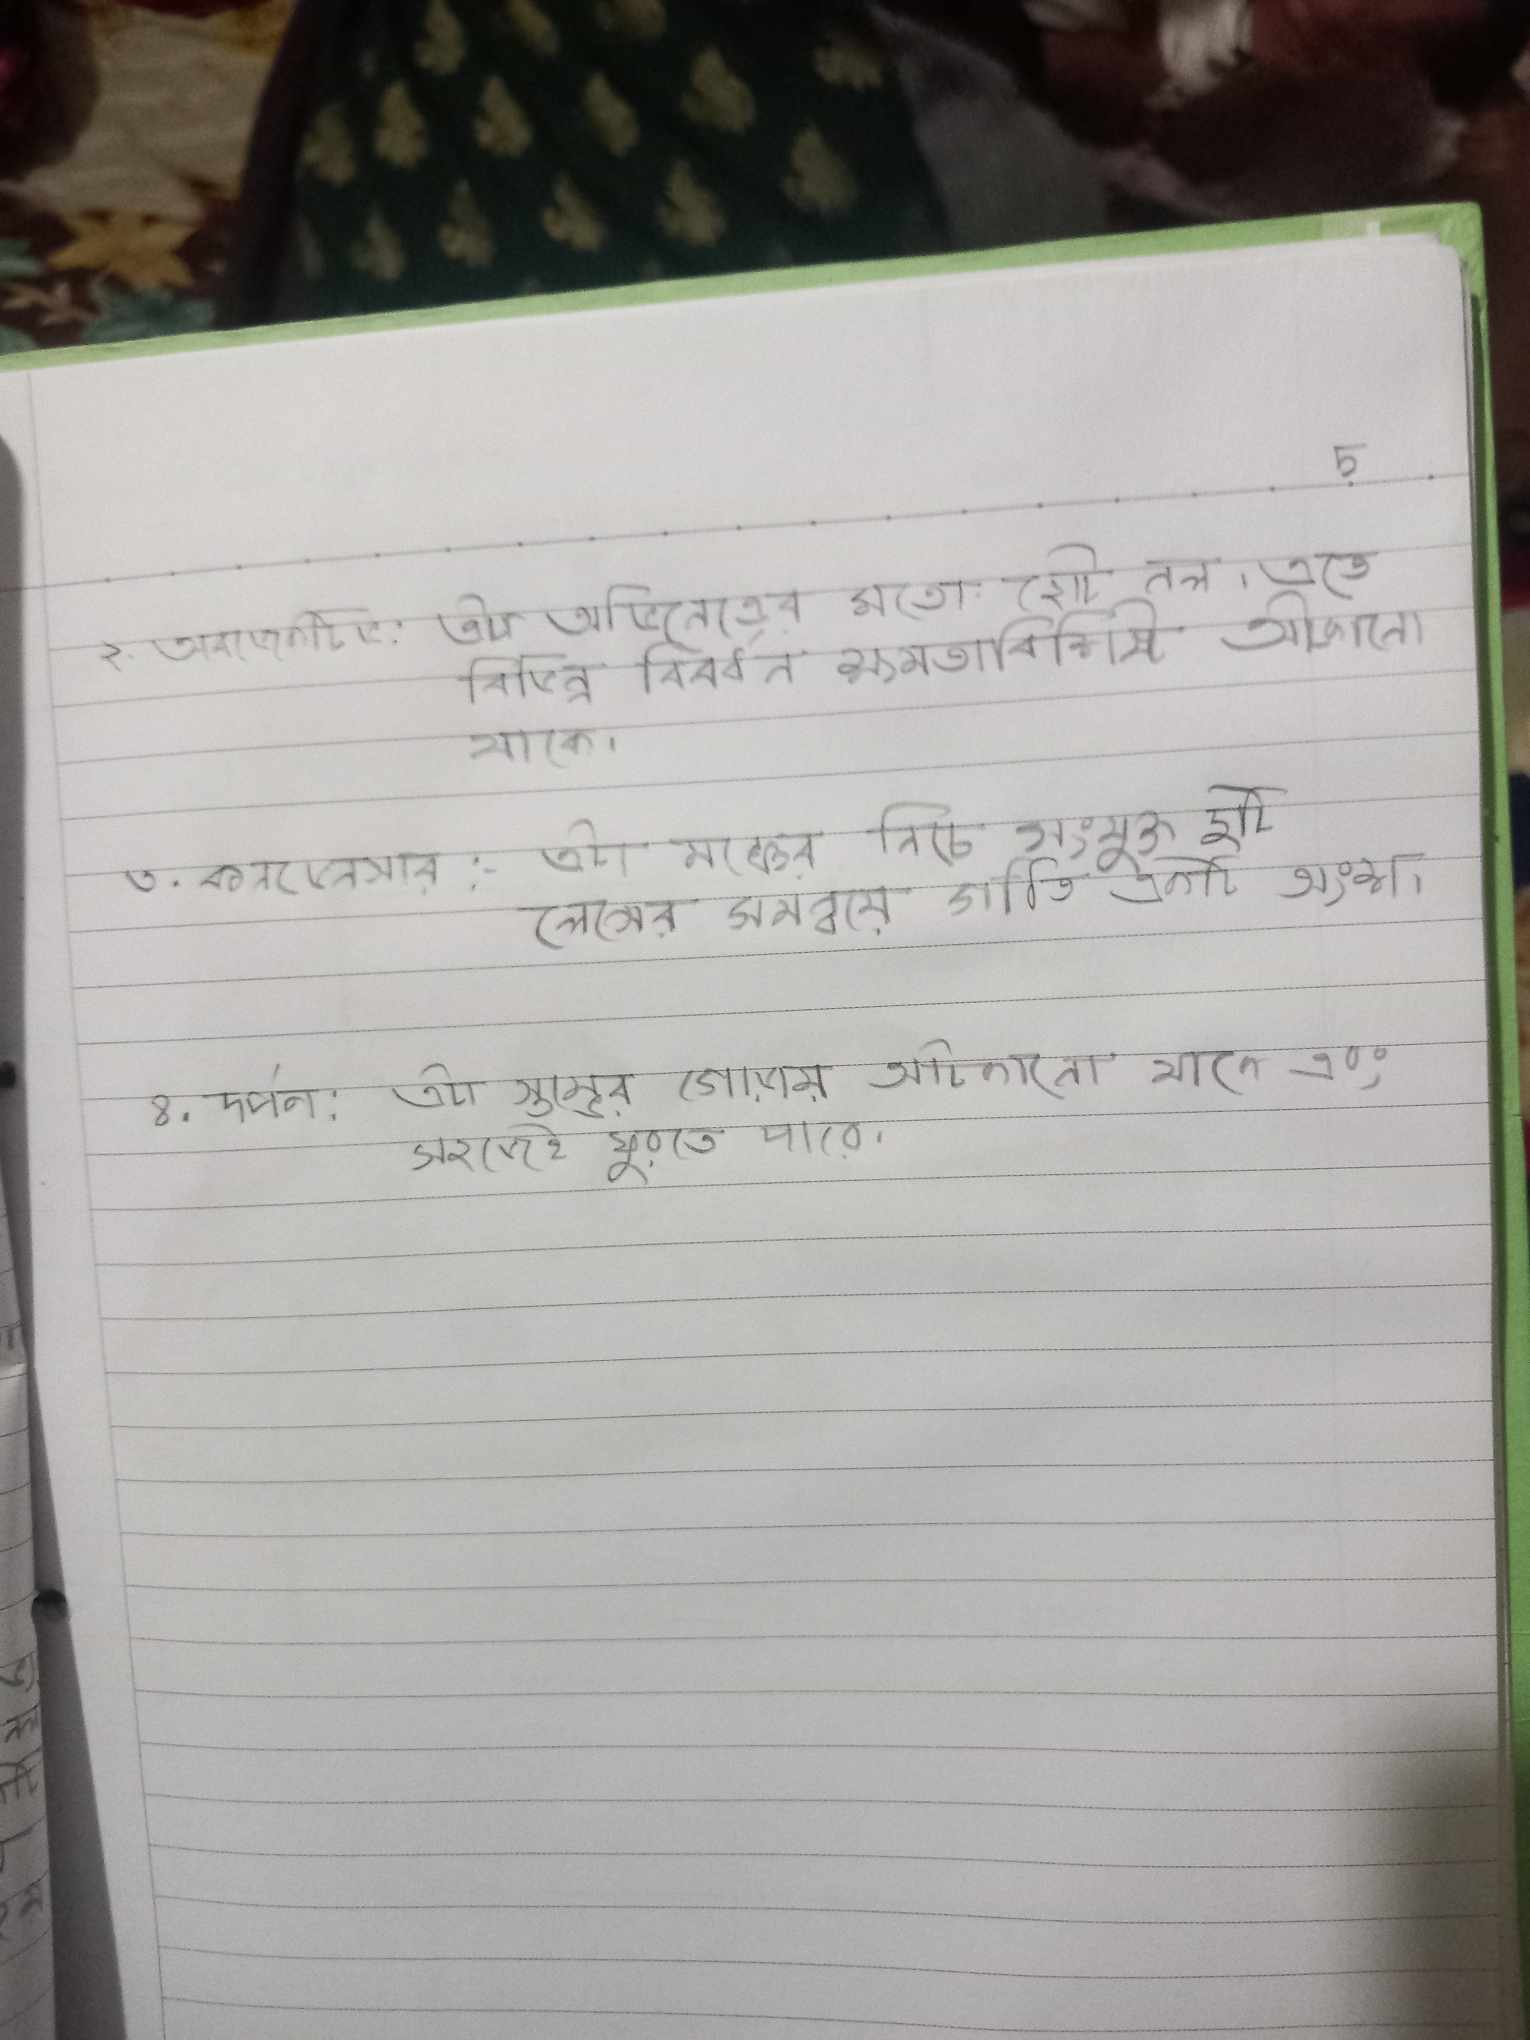 5
২. অবজেকটিভ: এটা অভিনেত্রের মতো ছোট নল। এতে
বিভিন্ন বিবর্ধন ক্ষমতাবিশিষ্ট আটকানো
থাকে।
৩. কনডেনসার :- এটা মঞ্চের নিচে সংযুক্ত দুটি
লেন্সের সমন্বয়ে গঠিত একটি অংশ।
৪. দর্পন: এটা স্তম্ভের গোড়ায় আটকানো থাকে এবং
সহজেই ঘুরতে পারে।